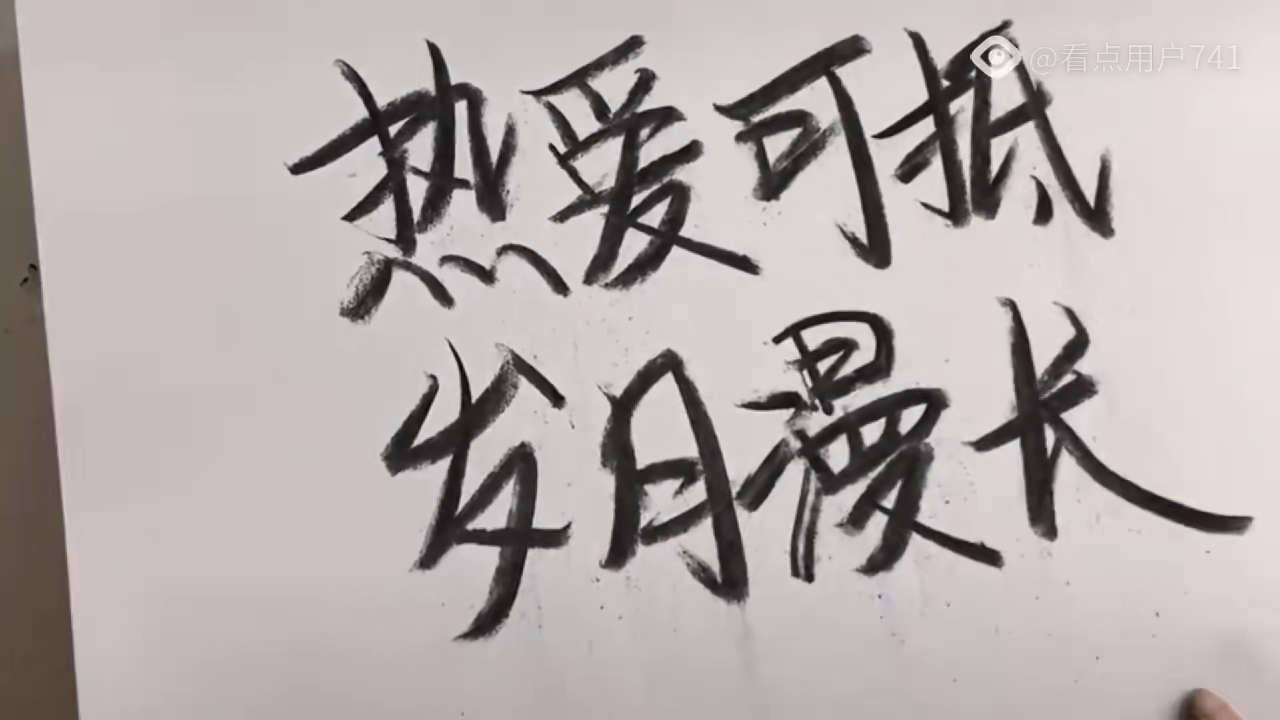 @看点用户741
热爱可抵
岁月漫长